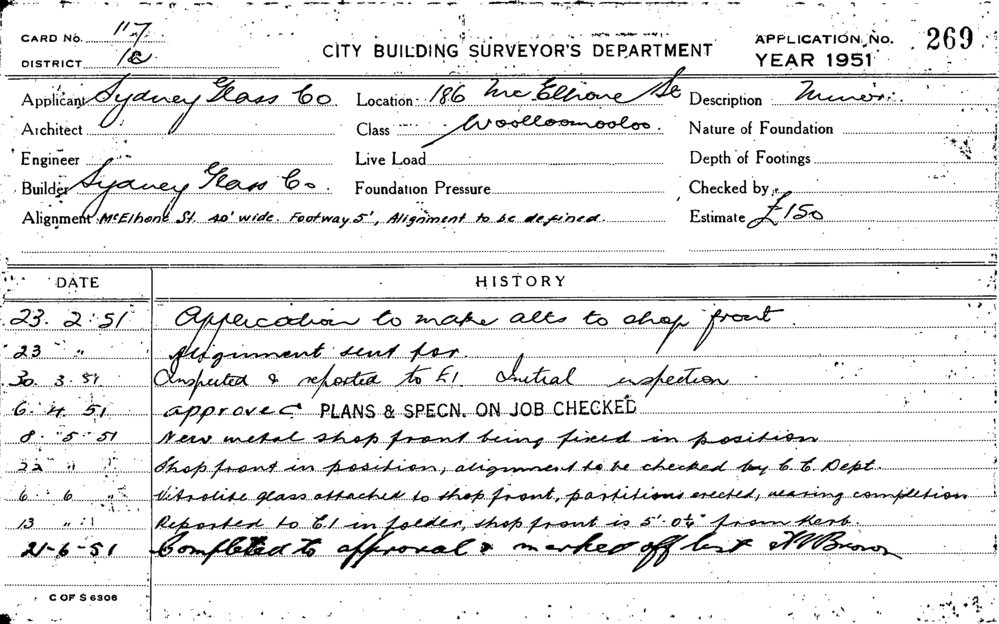 CARD No. 117
DISTRICT 12
CITY BUILDING SURVEYOR'S DEPARTMENT
APPLICATION No. 269
YEAR 1951
Applicant Sydney Glass Co Location 186 McElhone St Description Minor
Architect Class Woolloomooloo. Nature of Foundation
Engineer Live Load Depth of Footings
Builder Sydney Glass Co. Foundation Pressure Checked by
Alignment McElhone St. 40' wide. Footway 5', Alignment to be defined. Estimate £150
DATE HISTORY
23. 2. 51 Application to make alts to shop front.
23 " Alignment sent for.
30. 3. 51 Inspected & reported to E1 Initial inspection
6. 4. 51 approved PLANS & SPECN. ON JOB CHECKED
8. 5. 51 New metal shop front being fixed in position
22 " " Shop front in position, alignment to be checked by C.E. Dept.
6. 6 " Vitrolite glass attached to shop front, partitions erected, nearing completion
13 " " Reported to E1 in folder, shop front is 5'-0¼" from kerb.
21-6-51 Completed to approval & marked off list Brown
C OF S 6306